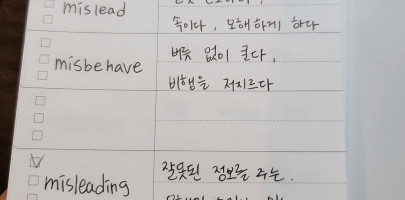 mislead
속이다, 오해하게 하다
misbehave
버릇 없이 굴다.
비행을 저지르다
misleading
잘못된 정보를 주는.